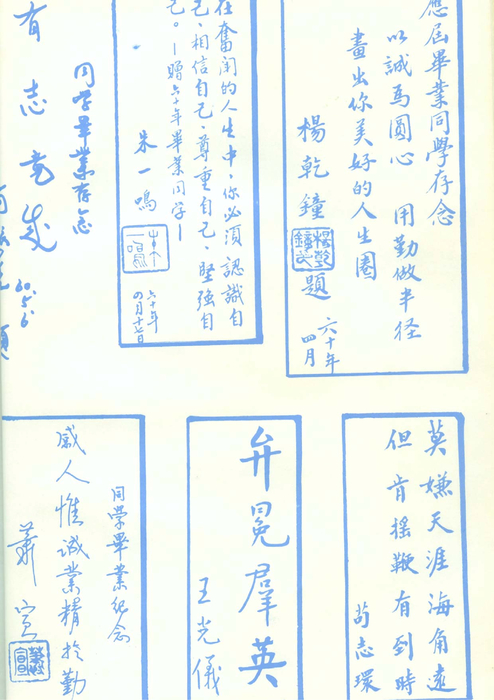 應屆畢業同學存念
以誠爲圓心 用勤做半径
畫出你美好的人生圈
楊乾鐘題
六十年
四月
在奮鬥的人生中，你必須認識自
己、相信自己、尊重自己、堅強自
己。—贈六十年畢業同学—
朱一鳴
六十年
四月十七日
同学畢業存念
有志竟成
60.5.6.
莫嫌天涯海角遠
但肯搖鞭有到時
苟志環
弁冕羣英
王光儀
同學畢業紀念
感人惟誠業精於勤
蕭宣